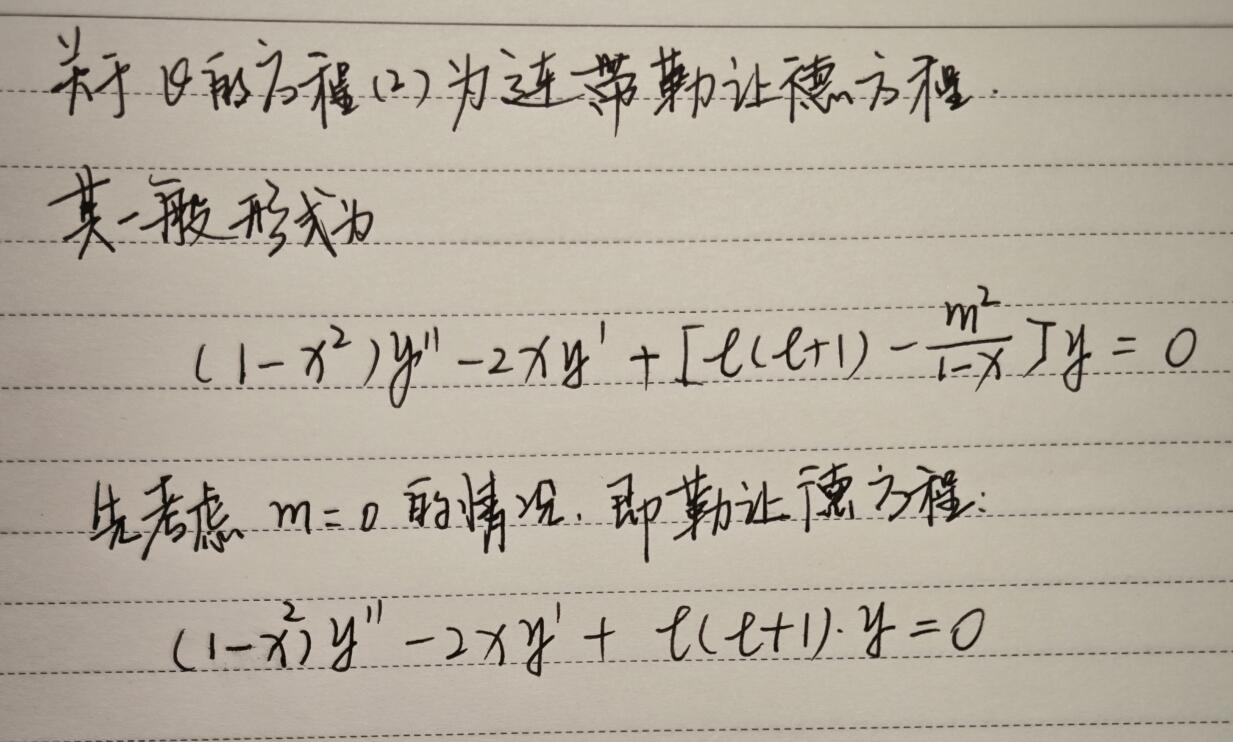 关于θ的方程(2)为连带勒让德方程.
其一般形式为
(1-x²)y'' -2xy' + [ℓ(ℓ+1) - m²/(1-x)]y = 0
先考虑 m=0 的情况. 即勒让德方程:
(1-x²)y'' -2xy' + ℓ(ℓ+1)·y =0